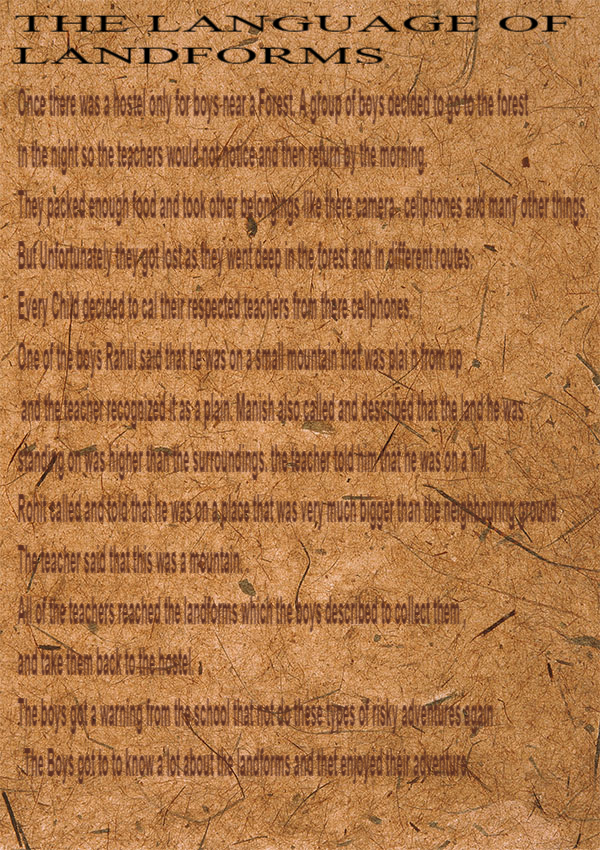 THE LANGUAGE OF
LANDFORMS
Once there was a hostel only for boys near a Forest. A group of boys decided to go to the forest
in the night so the teachers would not notice and then return by the morning.
They packed enough food and took other belongings like there camera, cellphones and many other things.
But Unfortunately they got lost as they went deep in the forest and in different routes.
Every Child decided to cal their respected teachers from there cellphones.
One of the boys Rahul said that he was on a small mountain that was plai n from up
and the teacher recognized it as a plain. Manish also called and described that the land he was
standing on was higher than the surroundings. the teacher told him that he was on a hill.
Rohit called and told that he was on a place that was very much bigger than the neighbouring ground.
The teacher said that this was a mountain.
All of the teachers reached the landforms which the boys described to collect them ,
and take them back to the hostel .
The boys got a warning from the school that not do these types of risky adventures again .
The Boys got to to know a lot about the landforms and thet enjoyed their adventure.